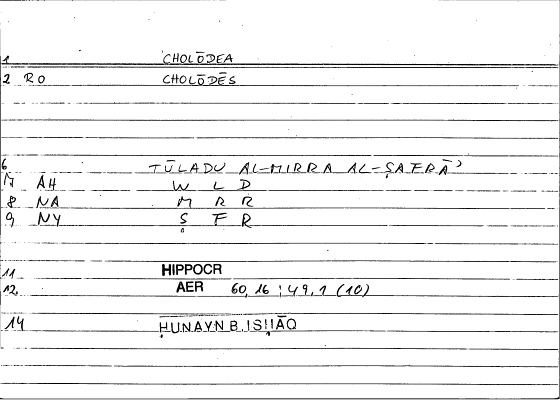 1 CHOLŌDEA
2 RO CHOLŌDĒS
6 TŪLADU AL-MIRRA AL-ṢAFRĀʾ
7 ĀH W L D
8 NA M R R
9 NY Ṣ F R
11 HIPPOCR
12 AER 60,16 ; 49,1 (10)
14 ḤUNAYN B. ISḤĀQ